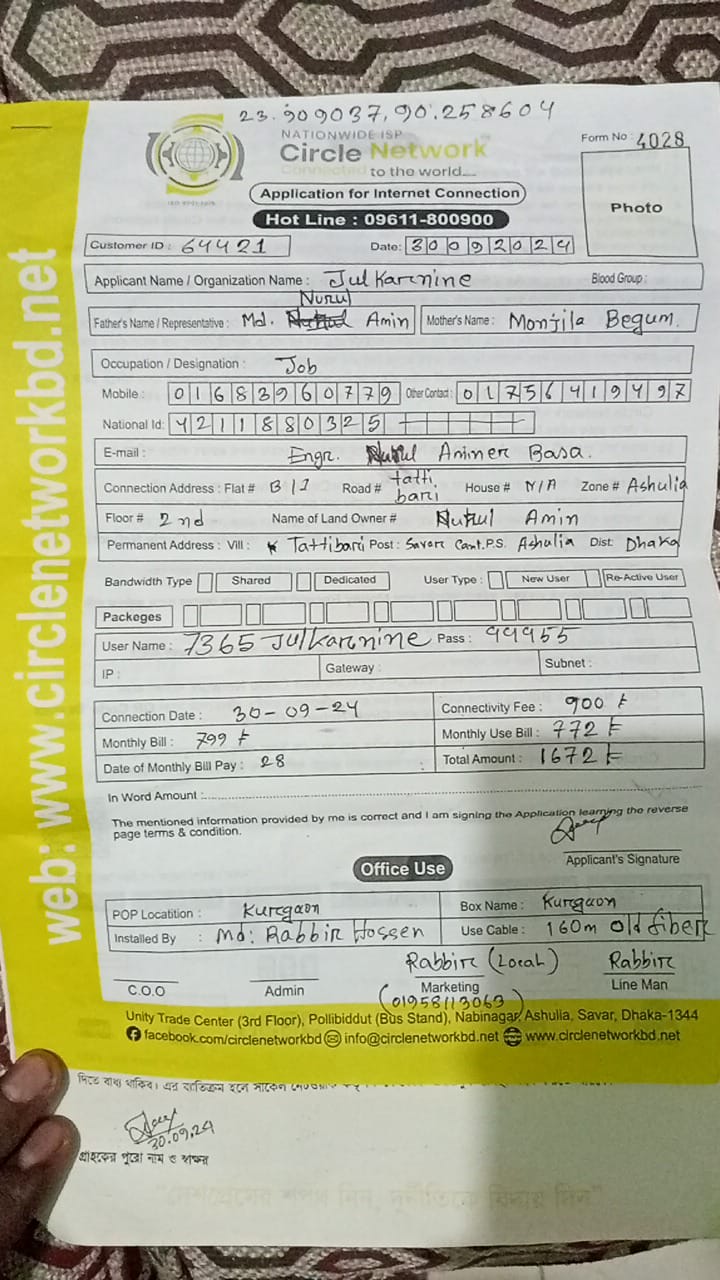 23.909037,90.258604
NATIONWIDE ISP
Circle Network
Connected to the world....
Form No : 4028
Application for Internet Connection
Hot Line : 09611-800900
Photo
Customer ID : 64421
Date: 30092024
Applicant Name / Organization Name : Julkarnine
Blood Group :
Nurul
Father's Name / Representative : Md. Amin
Mother's Name : Monjila Begum.
Occupation / Designation : Job
Mobile : 01683960779
Other Contact : 01756419497
National Id: 4211880325
E-mail : Engr. Nurul Aminer Basa.
Connection Address : Flat # B/1 Road # tatti bari House # N/A Zone # Ashulia
Floor # 2nd Name of Land Owner # Nurul Amin
Permanent Address : Vill : Tattibari Post : Savar Cant. P.S. Ashulia Dist: Dhaka
Bandwidth Type Shared Dedicated User Type : New User Re-Active User
Packeges
User Name : 7365 Julkarnine Pass : 99955
IP : Gateway : Subnet :
Connection Date : 30-09-24
Connectivity Fee : 900 ৳
Monthly Bill : 799 ৳
Monthly Use Bill : 772 ৳
Date of Monthly Bill Pay : 28
Total Amount : 1672 ৳
In Word Amount :
The mentioned information provided by me is correct and I am signing the Application learning the reverse
page terms & condition.
Applicant's Signature
Office Use
POP Locatition : Kurgaon
Box Name : Kurgaon
Installed By : Md: Rabbir Hossen
Use Cable : 160m old fiber
Rabbir (Local)
Rabbir
C.O.O
Admin
Marketing
Line Man
(01958113063)
Unity Trade Center (3rd Floor), Pollibiddut (Bus Stand), Nabinagar, Ashulia, Savar, Dhaka-1344
facebook.com/circlenetworkbd info@circlenetworkbd.net www.circlenetworkbd.net
web: www.circlenetworkbd.net
দিতে বাধ্য থাকিব। এর ব্যতিক্রম হলে
30.09.24
গ্রাহকের পুরো নাম ও স্বাক্ষর
"দেশপ্রেমের শপথ নিন, দুর্নীতিকে বিদায় দিন"